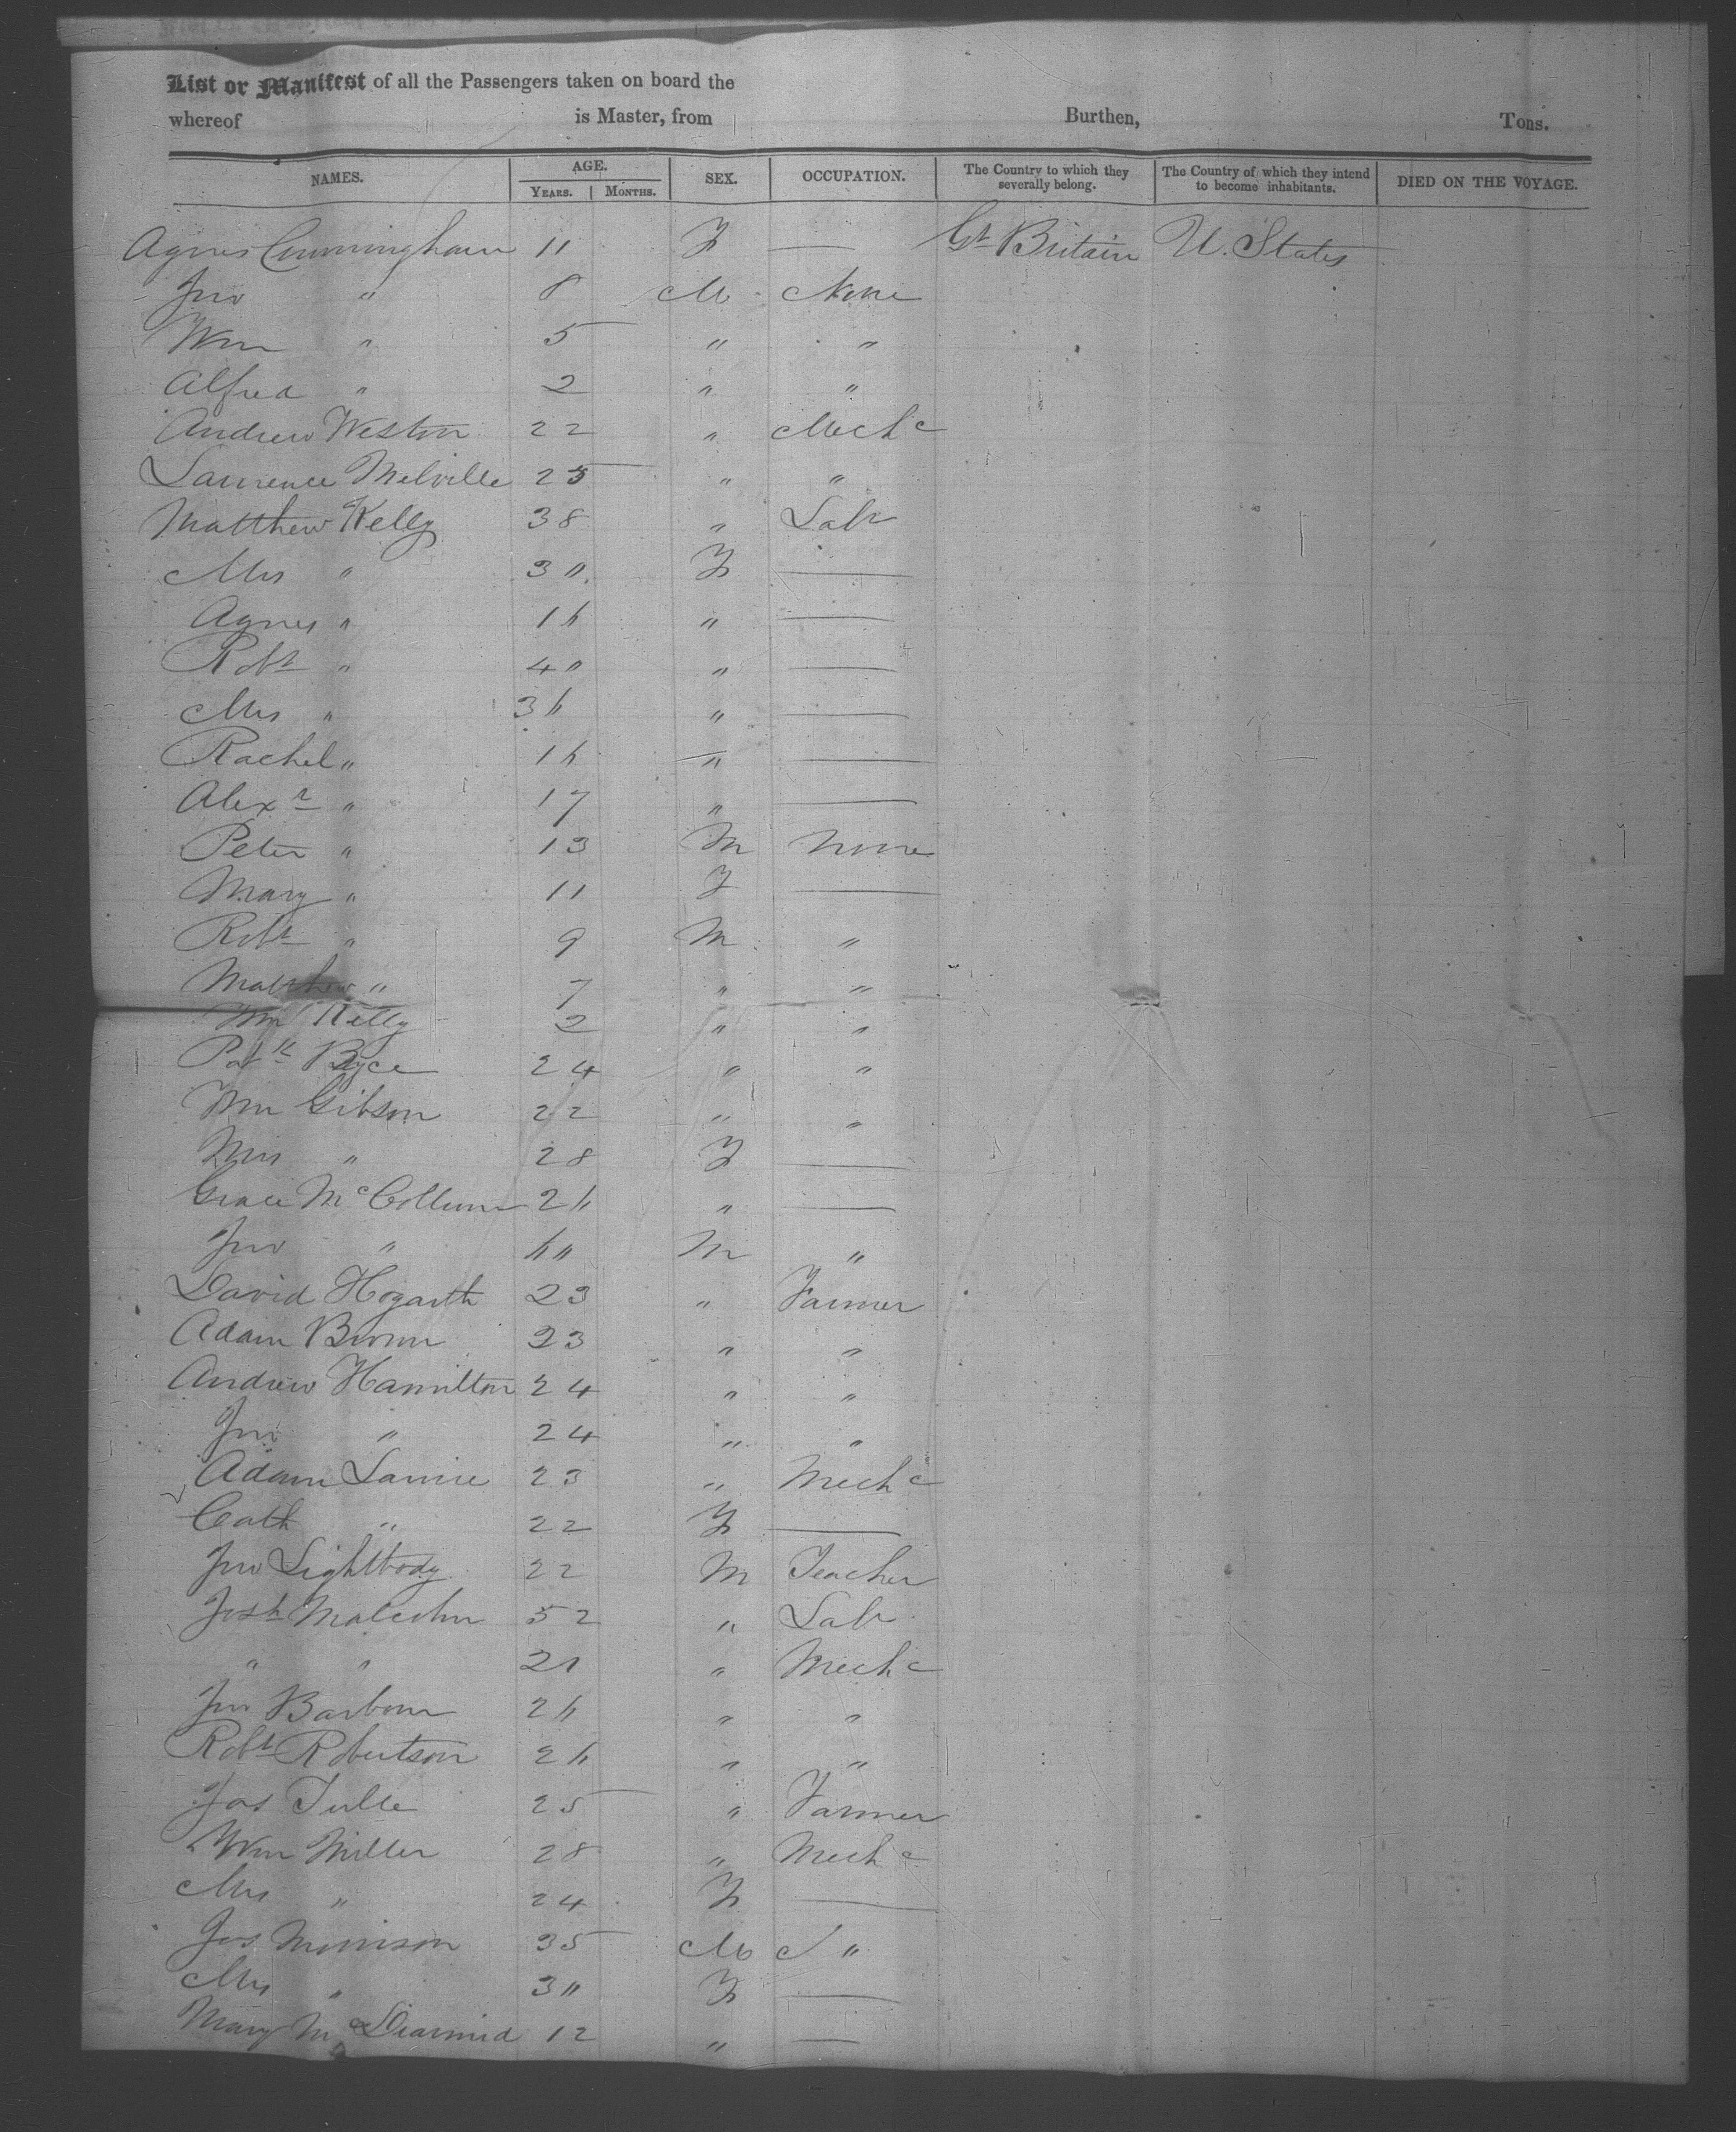 List or Manifest of all the Passengers taken on board the
whereof is Master, from Burthen, Tons.
NAMES. AGE. YEARS. MONTHS. SEX. OCCUPATION. The Country to which they severally belong. The Country of which they intend to become inhabitants. DIED ON THE VOYAGE.
Agnes Cunningham 11 F — Gt Britain U. States
Jno " 8 M None
Wm " 5 " "
Alfred " 2 " "
Andrew Weston 22 " Mechc
Lawrence Melville 25 " "
Matthew Kelly 38 " Labr
Mrs " 3" F —
Agnes " 1 " —
Robt " 4" " —
Mrs " 3 " —
Rachel " 1 " —
Alexr " 17 " —
Peter " 13 M None
Mary " 11 F —
Robt " 9 M "
Matthew " 7 " "
Wm Kelly 2 " "
Patk Byce 24 " "
Wm Gibson 22 " "
Mrs " 28 F —
Grace McCollum 2 " —
Jno " M "
David Hogarth 23 " Farmer
Adam Brown 23 " "
Andrew Hamilton 24 " "
Jno " 24 " "
Adam Lawrie 23 " Mechc
Cath " 22 F —
Jno Lightbody 22 M Teacher
Josh Malcolm 52 " Labr
" " 21 " Mechc
Jno Barbour 2 " "
Robt Robertson 2 " "
Jas 25 " Farmer
Wm Miller 28 " Mechc
Mrs " 24 F —
Jas Morrison 35 M "
Mrs " 3" F —
Mary McDiarmid 12 " —